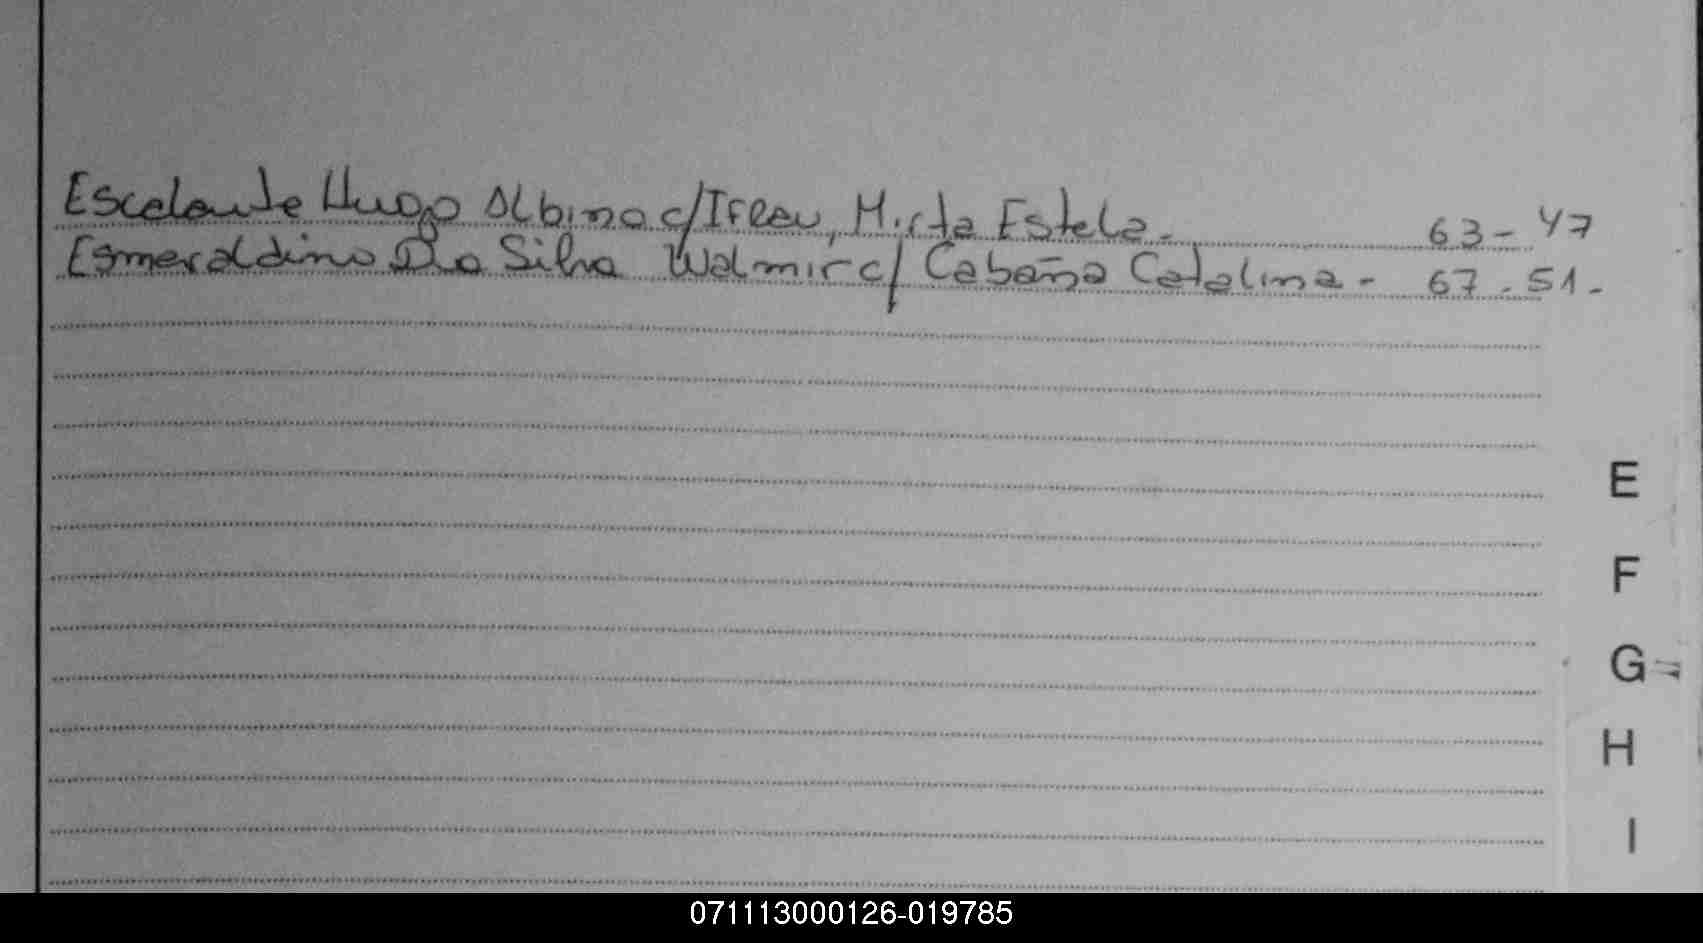 Escalante Hugo Albino c/ Ifran, Mirta Estela. 63 - 47
Esmeraldino Da Silva Walmir c/ Cabaña Catalina - 67 - 51 -
E
F
G
H
I
071113000126-019785